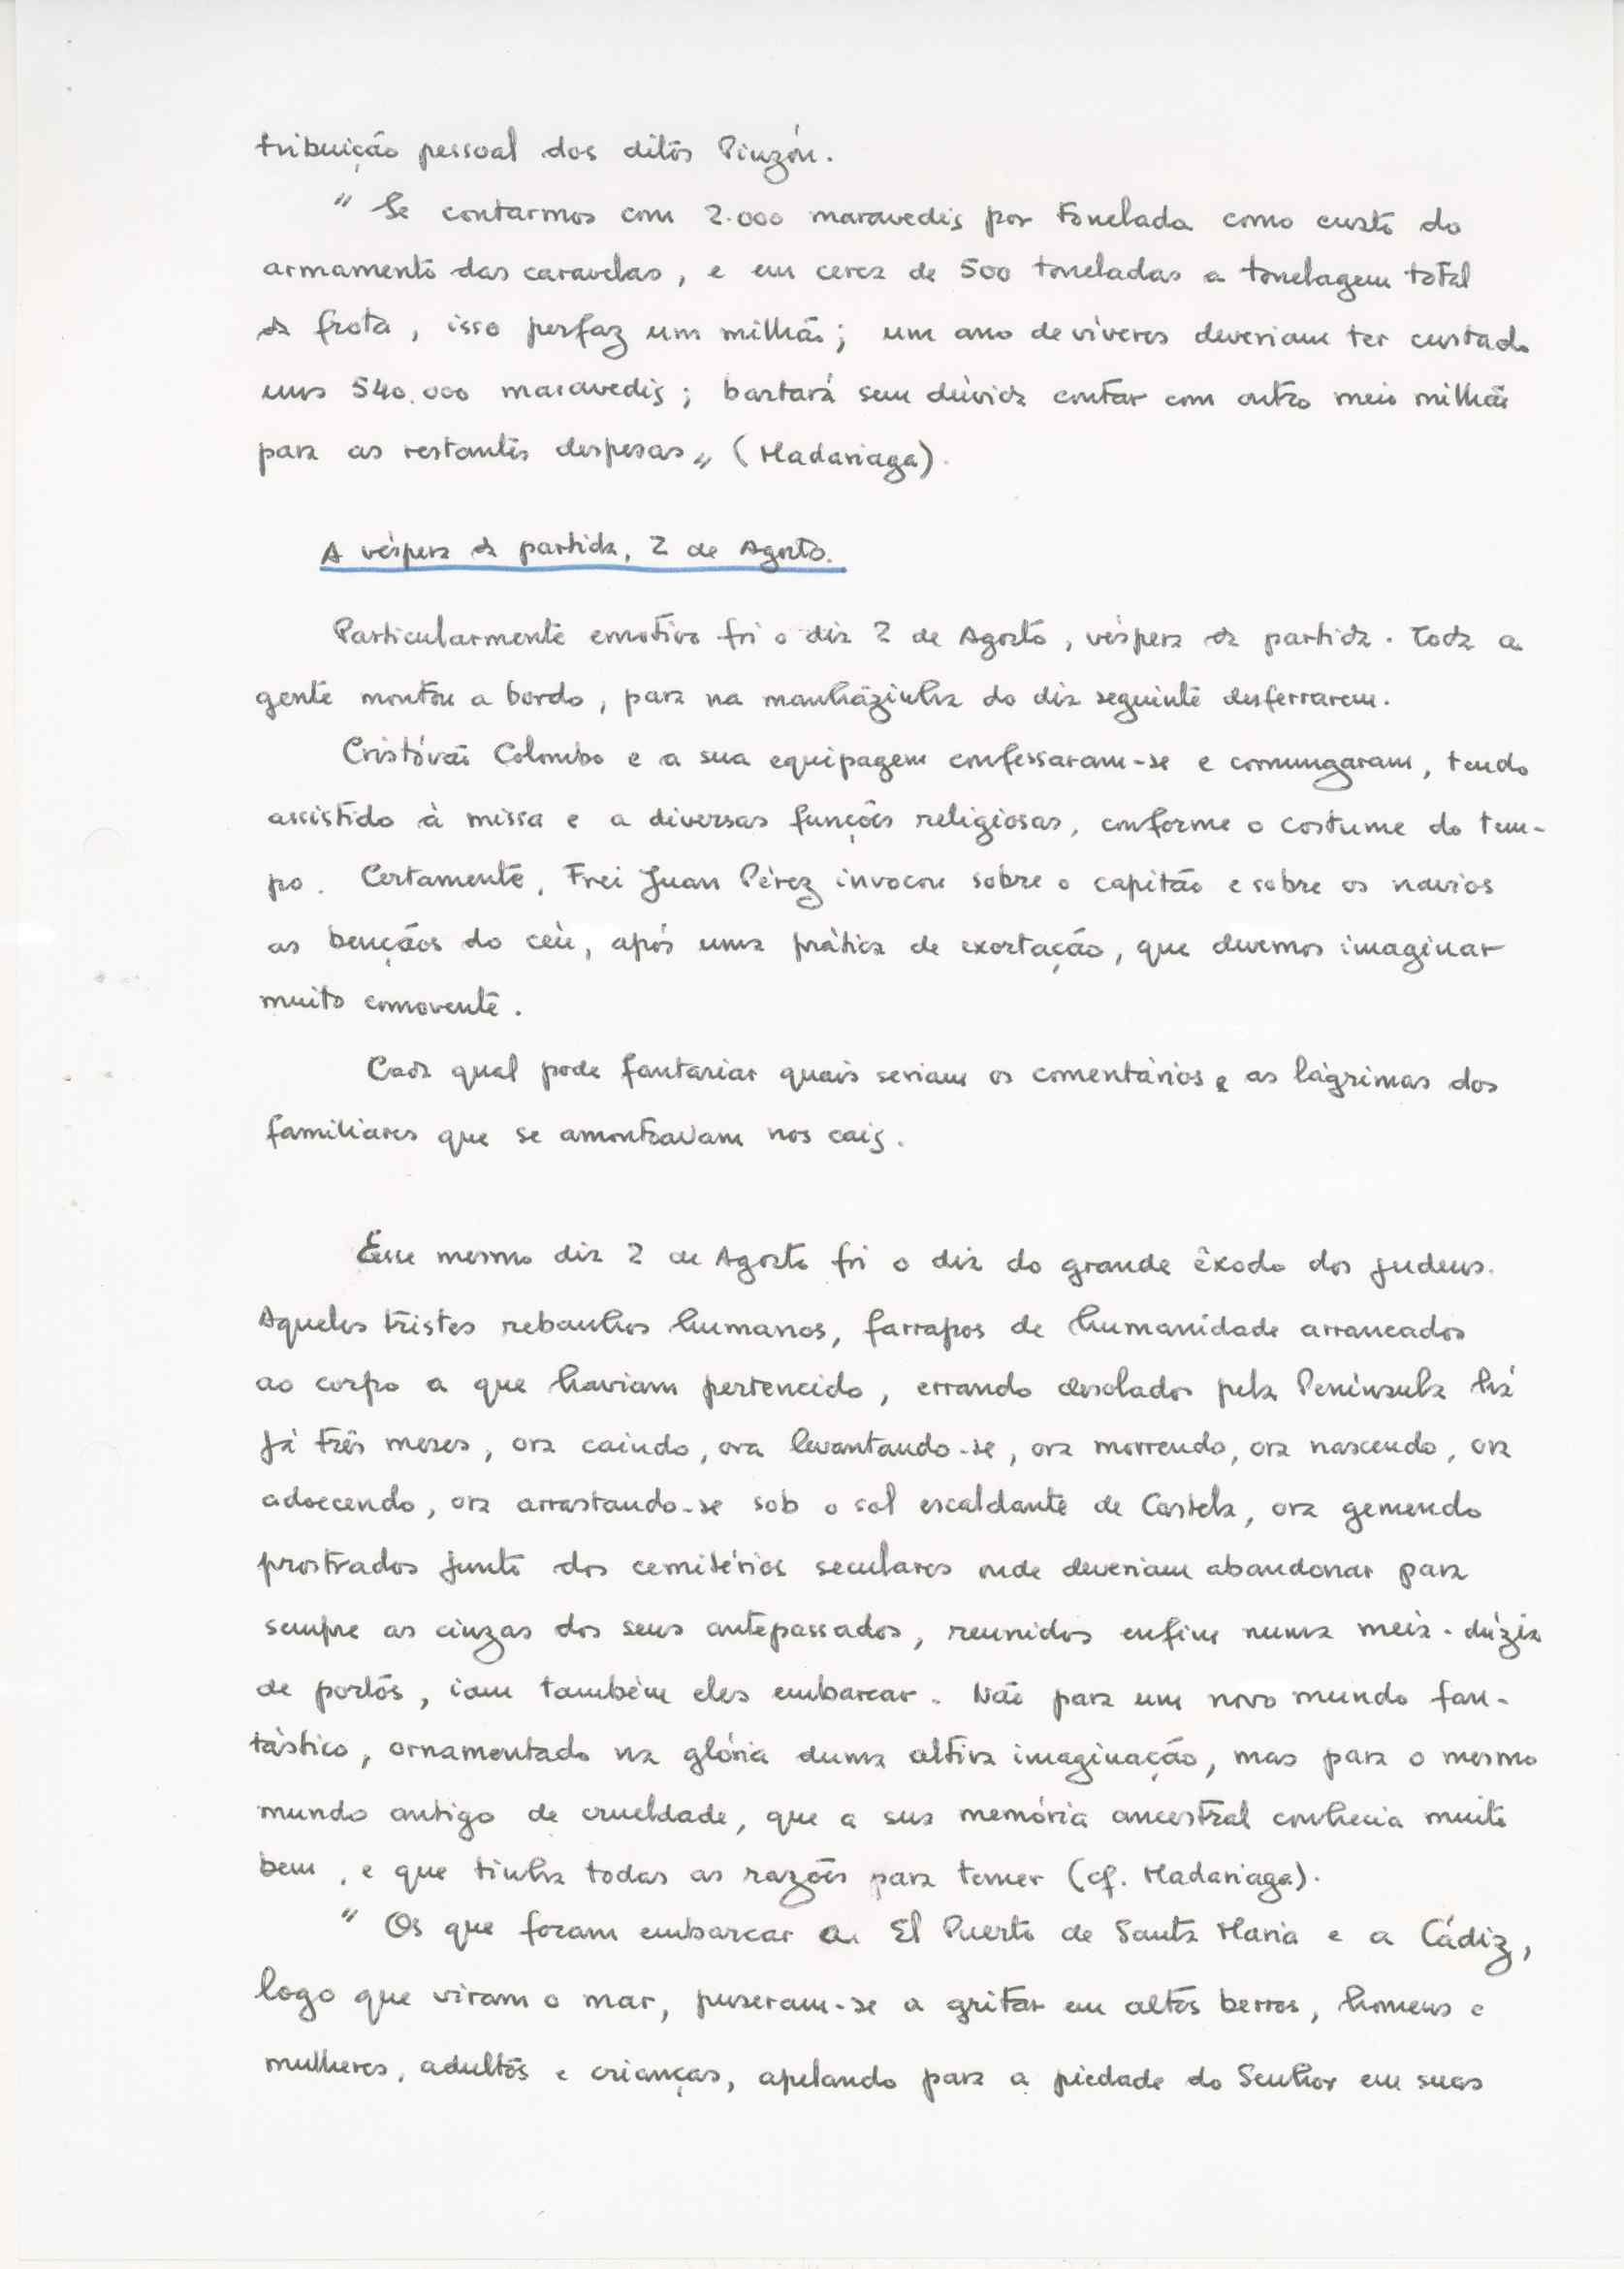 tribuição pessoal dos ditos Pinzón.
" Se contarmos com 2.000 maravedis por tonelada como custo do
armamento das caravelas, e em cerca de 500 toneladas a tonelagem total
da frota, isso perfaz um milhão; um ano de víveres deveriam ter custado
uns 540.000 maravedis; bastará sem dúvida contar com outro meio milhão
para as restantes despesas" (Madariaga).
A véspera da partida, 2 de Agosto.
Particularmente emotivo foi o dia 2 de Agosto, véspera da partida. Toda a
gente montou a bordo, para na manhãzinha do dia seguinte desferrarem.
Cristóvão Colombo e a sua equipagem confessaram-se e comungaram, tendo
assistido à missa e a diversas funções religiosas, conforme o costume do tem-
po. Certamente, Frei Juan Pérez invocou sobre o capitão e sobre os navios
as bençãos do céu, após uma prática de exortação, que devemos imaginar
muito comovente.
Cada qual pode fantasiar quais seriam os comentários e as lágrimas dos
familiares que se amontoavam nos cais.
Esse mesmo dia 2 de Agosto foi o dia do grande êxodo dos judeus.
Aqueles tristes rebanhos humanos, farrapos de humanidade arrancados
ao corpo a que haviam pertencido, errando desolados pela Península há
já três meses, ora caindo, ora levantando-se, ora morrendo, ora nascendo, ora
adoecendo, ora arrastando-se sob o sol escaldante de Castela, ora gemendo
prostrados junto dos cemitérios seculares onde deveriam abandonar para
sempre as cinzas dos seus antepassados, reunidos enfim numa meia-dúzia
de portos, iam também eles embarcar. Não para um novo mundo fan-
tástico, ornamentado na glória duma altiva imaginação, mas para o mesmo
mundo antigo de crueldade, que a sua memória ancestral conhecia muito
bem, e que tinha todas as razões para temer (cf. Madariaga).
" Os que foram embarcar a El Puerto de Santa Maria e a Cádiz,
logo que viram o mar, puseram-se a gritar em altos berros, homens e
mulheres, adultos e crianças, apelando para a piedade do Senhor em suas